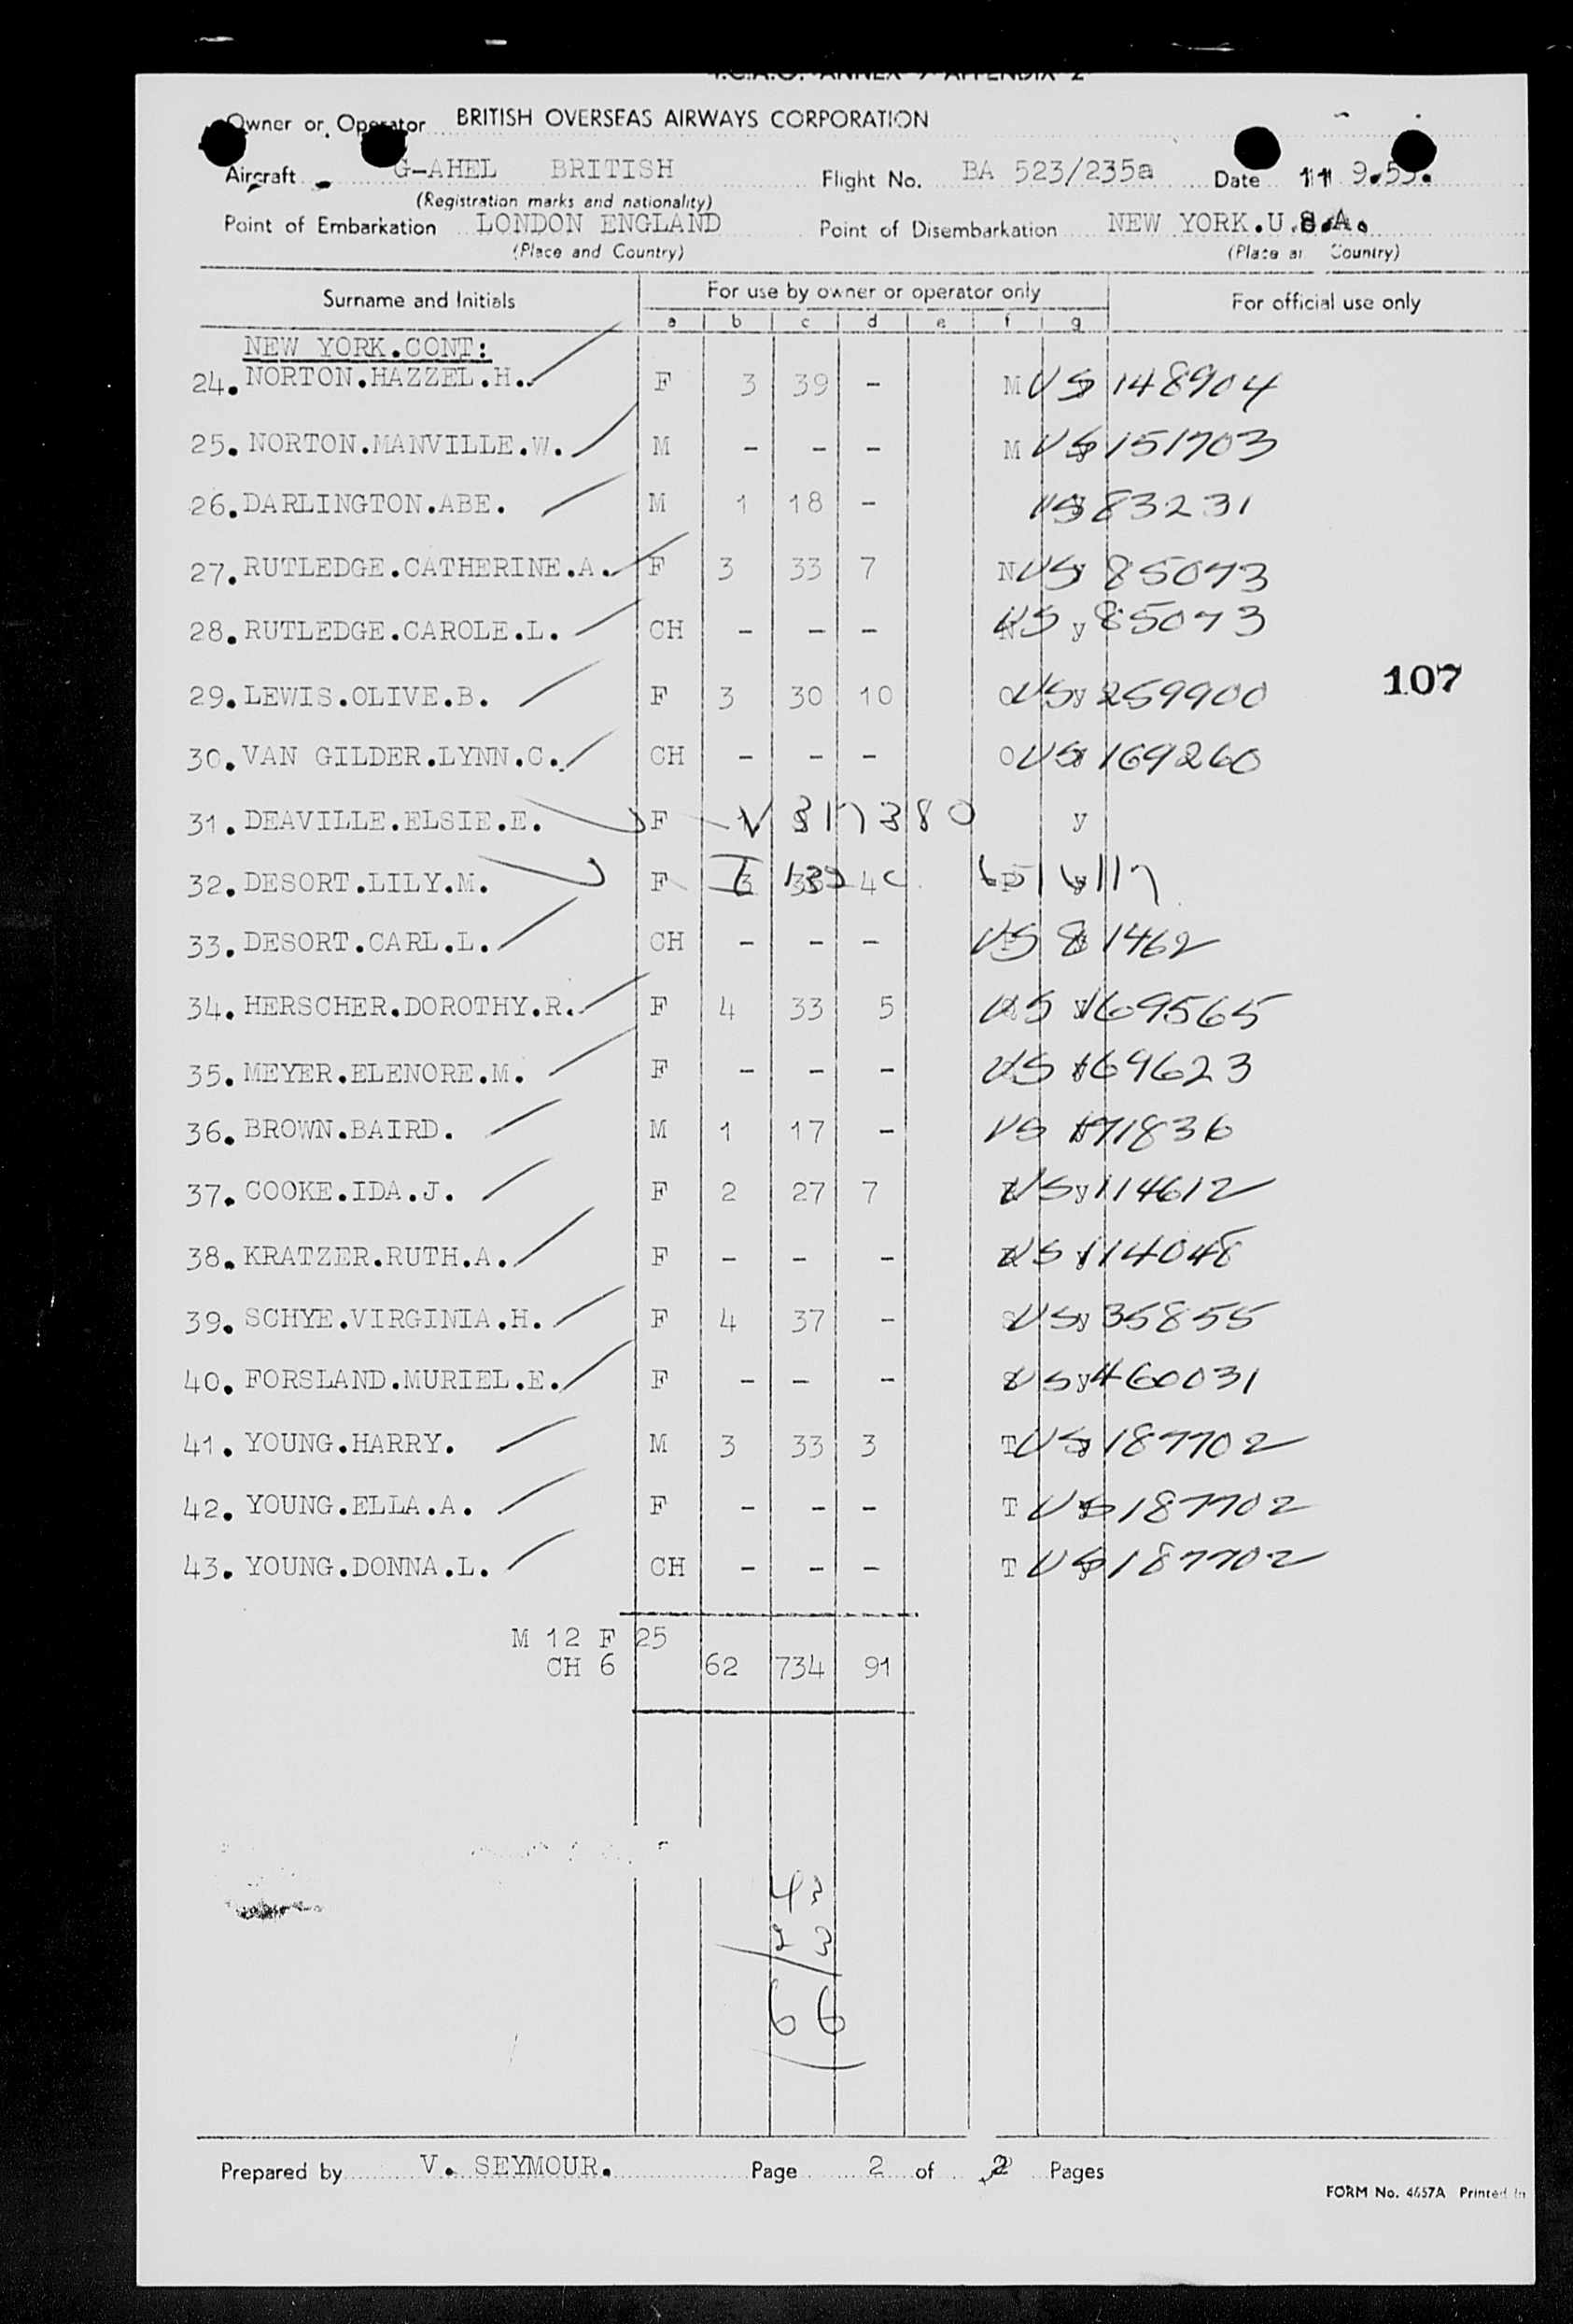 I.C.A.O. ANNEX 9 APPENDIX 2
Owner or Operator BRITISH OVERSEAS AIRWAYS CORPORATION
Aircraft G-AHEL BRITISH Flight No. BA 523/235a Date 11 9.53.
(Registration marks and nationality)
Point of Embarkation LONDON ENGLAND Point of Disembarkation NEW YORK.U.S.A.
(Place and Country) (Place and Country)
Surname and Initials For use by owner or operator only For official use only
a b c d e f g
NEW YORK.CONT:
24. NORTON.HAZZEL.H. F 3 39 - M US 148904
25. NORTON.MANVILLE.W. M - - - M US 151703
26. DARLINGTON.ABE. M 1 18 - US 83231
27. RUTLEDGE.CATHERINE.A. F 3 33 7 N US 85073
28. RUTLEDGE.CAROLE.L. CH - - - N US y 85073
29. LEWIS.OLIVE.B. F 3 30 10 O US y 259900
107
30. VAN GILDER.LYNN.C. CH - - - O US 169260
31. DEAVILLE.ELSIE.E. F V 317380 y
32. DESORT.LILY.M. F
33. DESORT.CARL.L. CH - - - US 81462
34. HERSCHER.DOROTHY.R. F 4 33 5 US 169565
35. MEYER.ELENORE.M. F - - - US 169623
36. BROWN.BAIRD. M 1 17 - US 171836
37. COOKE.IDA.J. F 2 27 7 US y 114612
38. KRATZER.RUTH.A. F - - - US 114048
39. SCHYE.VIRGINIA.H. F 4 37 - US y 35855
40. FORSLAND.MURIEL.E. F - - - US y 460031
41. YOUNG.HARRY. M 3 33 3 T US 187702
42. YOUNG.ELLA.A. F - - - T US 187702
43. YOUNG.DONNA.L. CH - - - T US 187702
M 12 F 25
CH 6 62 734 91
Prepared by V. SEYMOUR. Page 2 of 2 Pages
FORM No. 4657A Printed in